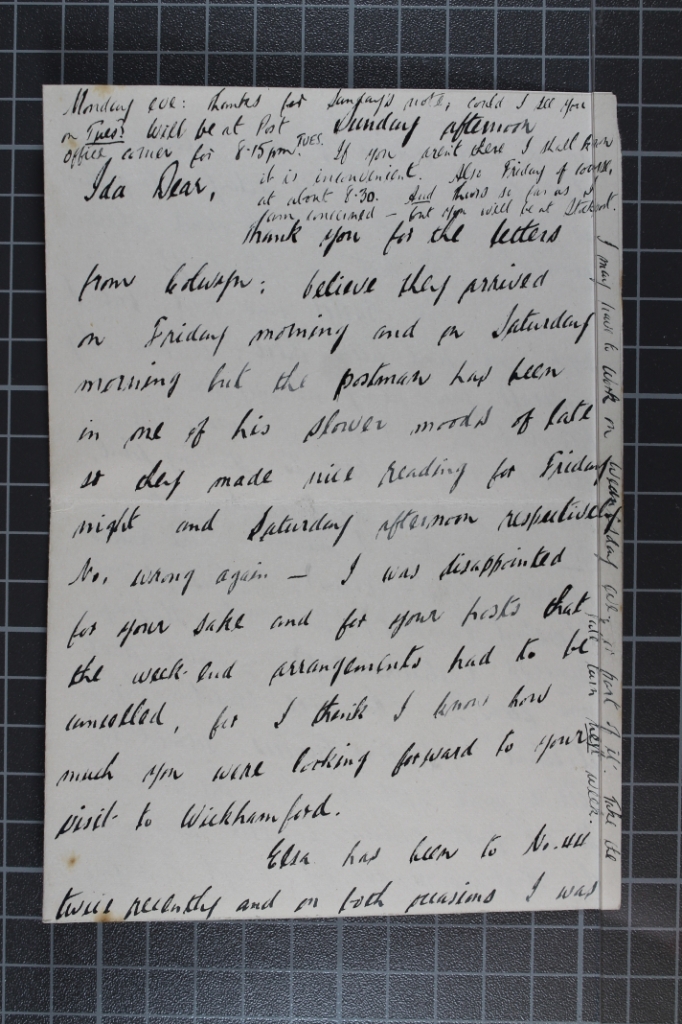 Monday eve: thanks for Sunday's note, could I see you
on Tues? Will be at Post
office, corner for 8.15pm. TUES. If you aren't there I shall know
it is inconvenient. Also Friday of course,
at about 8.30. And thurs so far as I
am concerned – but you will be at
Sunday afternoon
Ida Dear,
Thank you for the letters
from Colwyn: believe they arrived
on Friday morning and on Saturday
morning but the postman has been
in one of his slower moods of late
so they made nice reading for Friday
night and Saturday afternoon respectively.
No, wrong again — I was disappointed
for your sake and for your hosts that
the week-end arrangements had to be
cancelled, for I think I know how
much you were looking forward to your
visit to Wickhamford.
Elsa has been to No. 44
twice recently and on both occasions I was
I may have to work on Wednesday eve, or part of it. Take the
late turn next week.